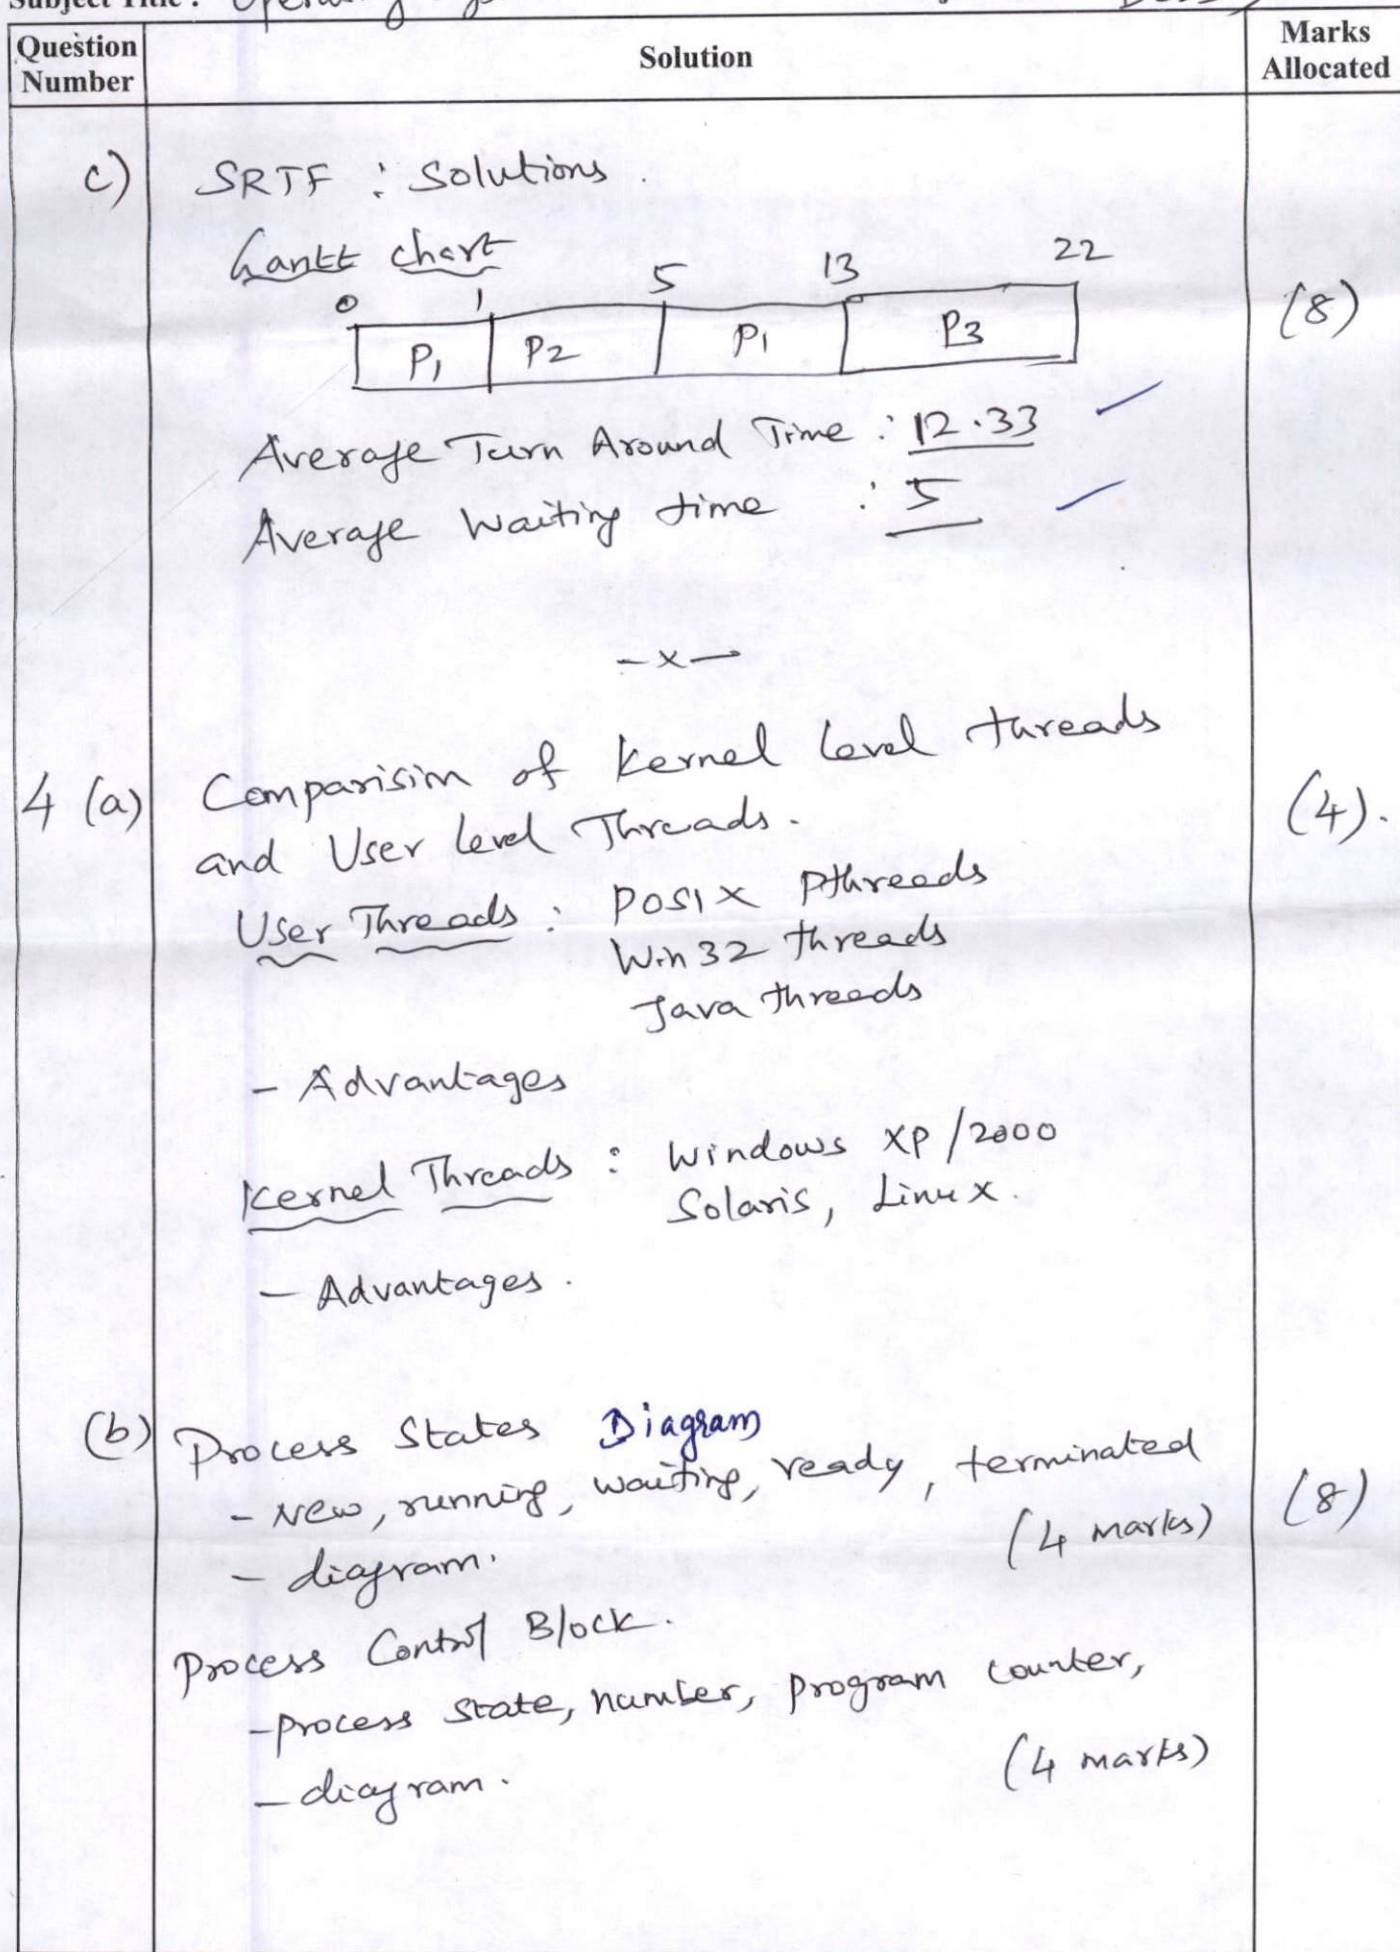 Subject Title : Operating
Question Number
Solution
Marks Allocated
c)
SRTF : Solutions.
Gantt chart
0 1 5 13 22
P1 P2 P1 P3
(8)
Average Turn Around Time : 12.33
Average Waiting time : 5
-x-
4 (a)
Comparisim of Kernel level threads
(4).
and User level Threads.
User Threads : POSIX Pthreads
Win 32 threads
Java threads
- Advantages
Kernel Threads : Windows XP/2000
Solaris, Linux.
- Advantages.
(b)
Process States Diagram
- New, running, waiting, ready, terminated
(8)
- diagram. (4 marks)
Process Control Block.
- process state, number, program counter,
- diagram. (4 marks)